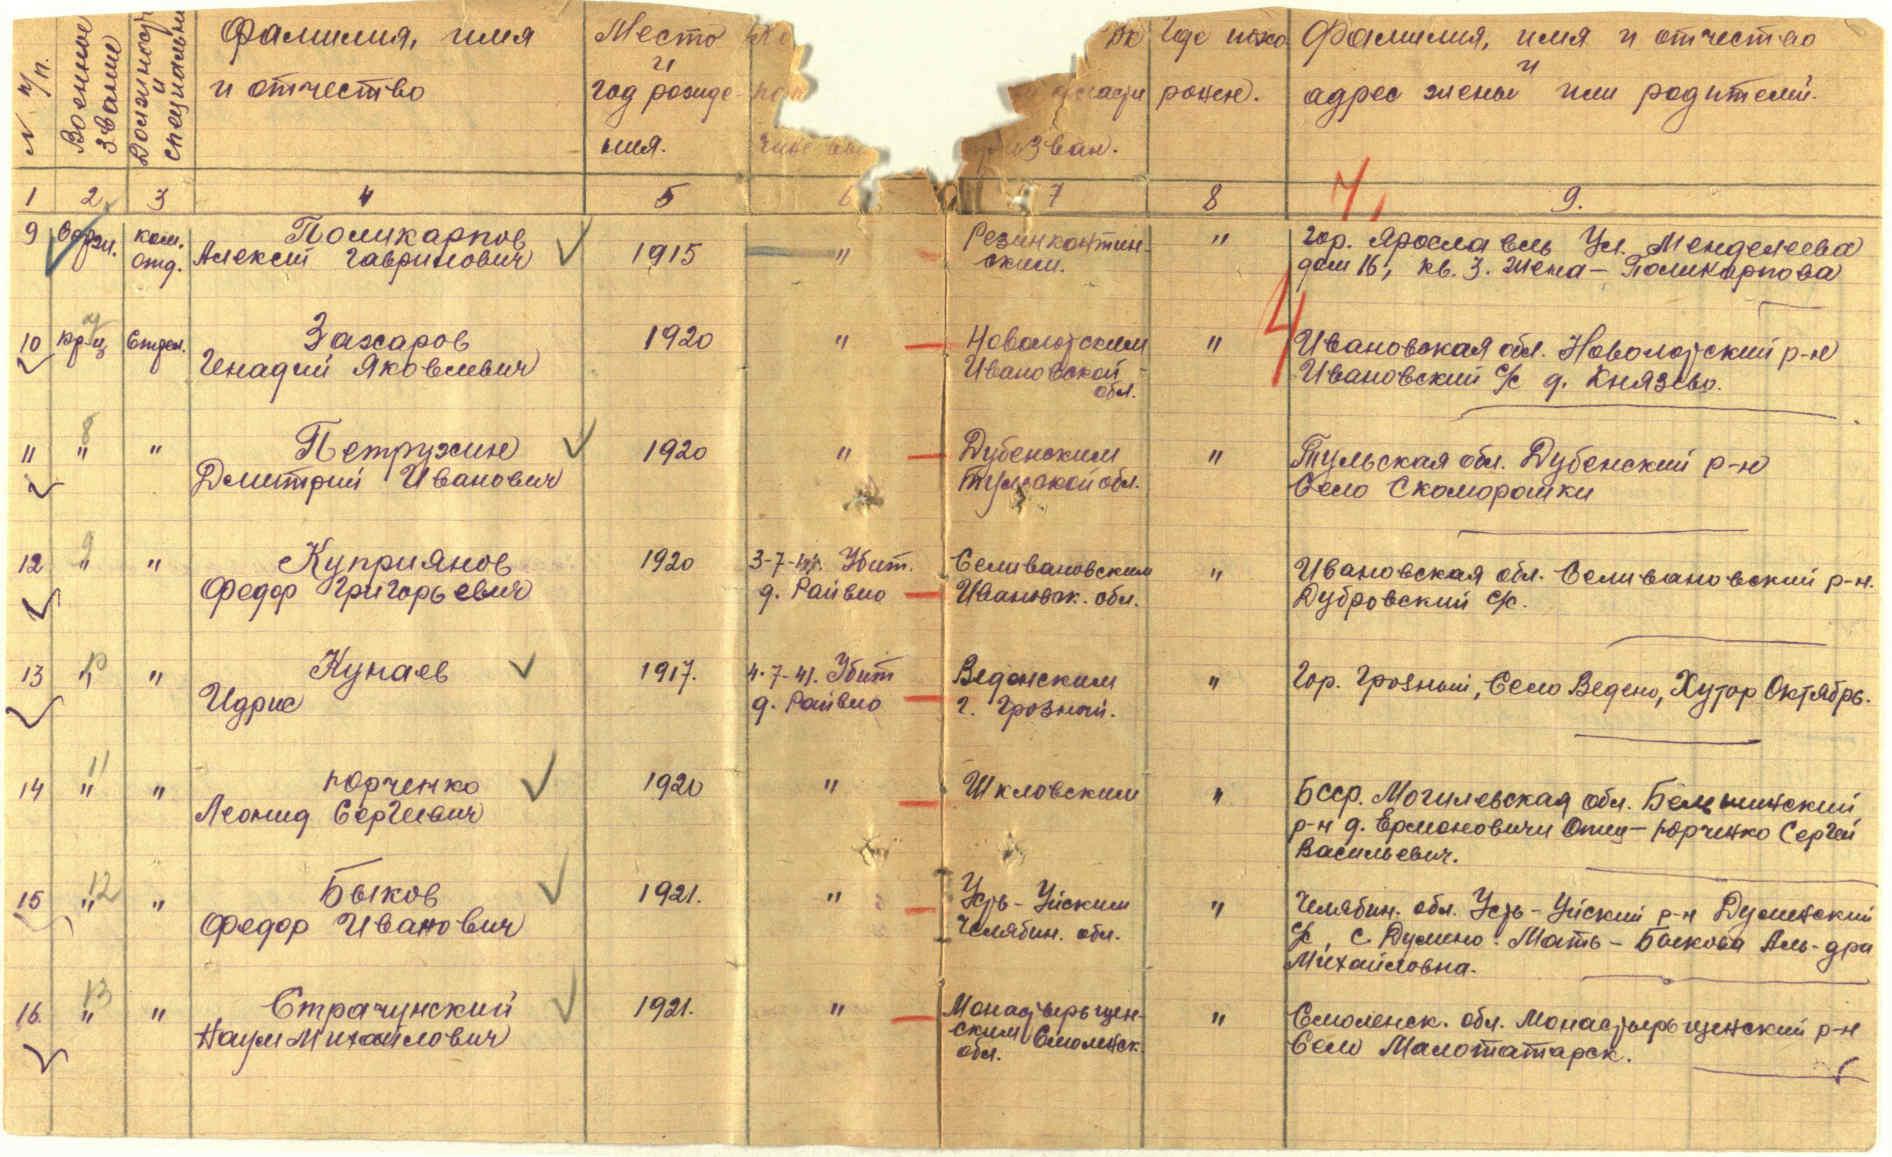 N п/п.
Военное звание
Должность и специальн
Фамилия, имя и отчество
Место и год рождения.
Где похоронен.
Фамилия, имя и отчество и адрес жены или родителей.
1 2 3 4 5 6 7 8 9.
9 Серж. ком. отд. Поликарпов Алексей Гаврилович 1915 " " гор. Ярославль Ул. Менделеева
дом 16, кв. 3. Жена – Поликарпова
10 кр-ц Стрел. Захаров Генадий Яковлевич 1920 " Новолотским Ивановской обл. " Ивановская обл. Новолотский р-н
Ивановский с/с д. Князево.
11 " " Петрухин Дмитрий Иванович 1920 " Дубенским Тульской обл. " Тульская обл. Дубенский р-н
Село Скоморошки
12 " " Куприянов Федор Григорьевич 1920 3-7-41. Убит. д. Райвио Селивановским Ивановск. обл. " Ивановская обл. Селивановский р-н.
Дубровский с/с.
13 " " Кунаев Идрис 1917. 4-7-41. Убит д. Райвио Веденским г. Грозный. " Гор. Грозный, Село Ведено, Хутор Октябрь.
14 " " Юрченко Леонид Сергеевич 1920 " Шкловским " БССР. Могилевская обл.
р-н д. Ермоновичи Отец – Юрченко Сергей
Васильевич.
15 " " Быков Федор Иванович 1921. " Усть-Уйским Челябин. обл. " Челябин. обл. Усть-Уйский р-н
с/с, с Думино. Мать – Быкова Ал-дра
Михайловна.
16. " " Страчунский Наум Михайлович 1921. " Монастырьщенским Смоленск. обл. " Смоленск. обл. Монастырьщенский р-н
Село Малотатарск.